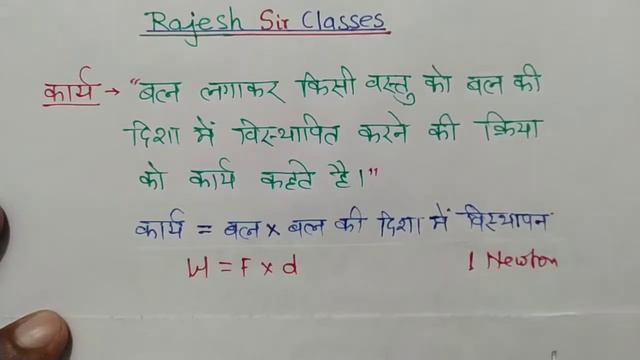 Rajesh Sir Classes
कार्य → "बल लगाकर किसी वस्तु को बल की
दिशा में विस्थापित करने की क्रिया
को कार्य कहते है।"
कार्य = बल × बल की दिशा में विस्थापन
W = F × d 1 Newton